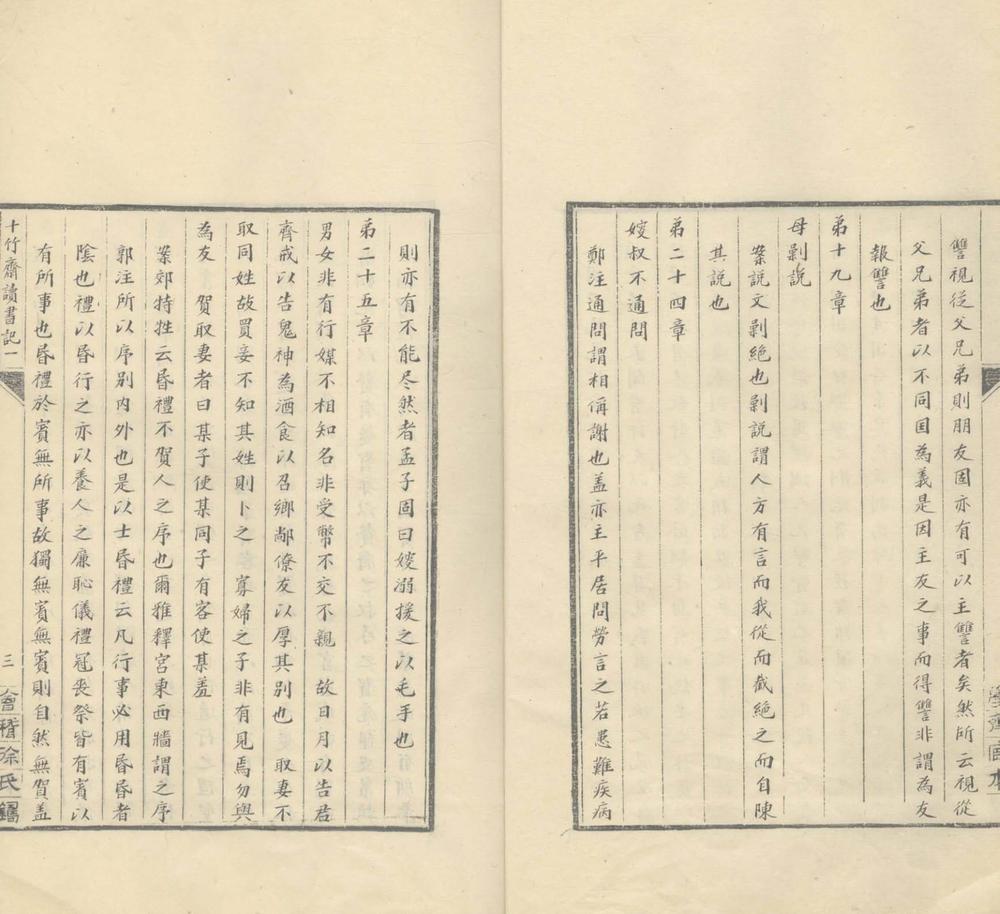 讐視從父兄弟則朋友固亦有可以主讐者矣然所云視從
父兄弟者以不同国為義是因主友之事而得讐非謂為友
報讐也
弟十九章
毋剿說
案說文剿絕也剿說謂人方有言而我從而截絕之而自陳
其說也
弟二十四章
嫂叔不通問
鄭注通問謂相偁謝也盖亦主平居問勞言之若患難疾病
則亦有不能尽然者孟子固曰嫂溺援之以毛手也
弟二十五章
男女非有行媒不相知名非受幣不交不親 故日月以告君
齊戒以告鬼神為酒食以召鄉鄰僚友以厚其別也 取妻不
取同姓故買妾不知其姓則卜之 寡婦之子非有見焉勿與
為友 賀取妻者曰某子使某同子有客使某羞
案郊特牲云昏禮不賀人之序也爾雅釋宮東西牆謂之序
郭注所以序別内外也是以士昏禮云凡行事必用昏昏者
陰也禮以昏行之亦以養人之廉恥儀禮冠喪祭皆有賓以
有所事也昏禮於賓無所事故獨無賓無賓則自然無賀盖
十竹齋讀書記一
三
會稽徐氏鑄